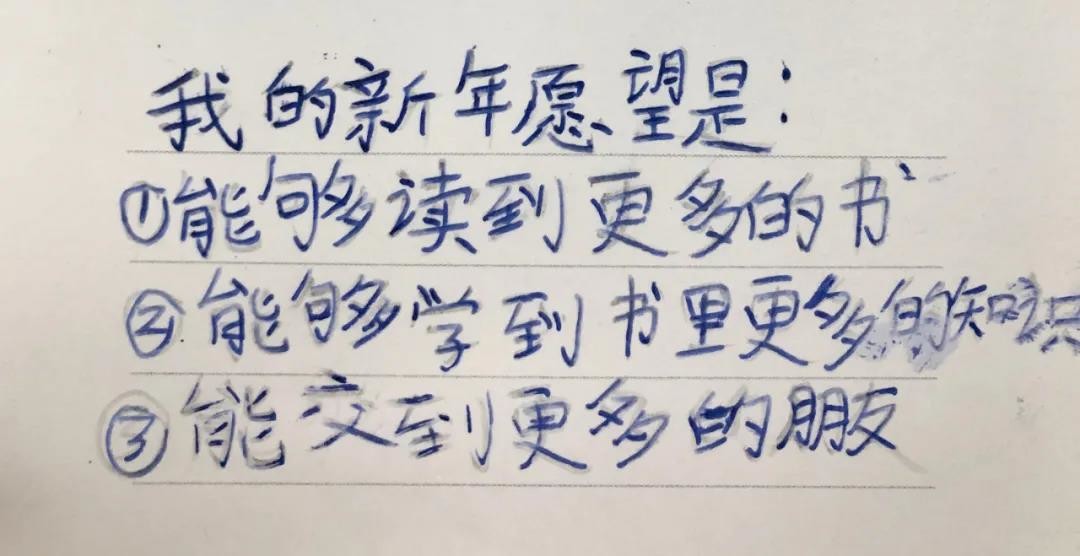 我的新年愿望是:
①能够读到更多的书
②能够学到书里更多的知识
③能交到更多的朋友